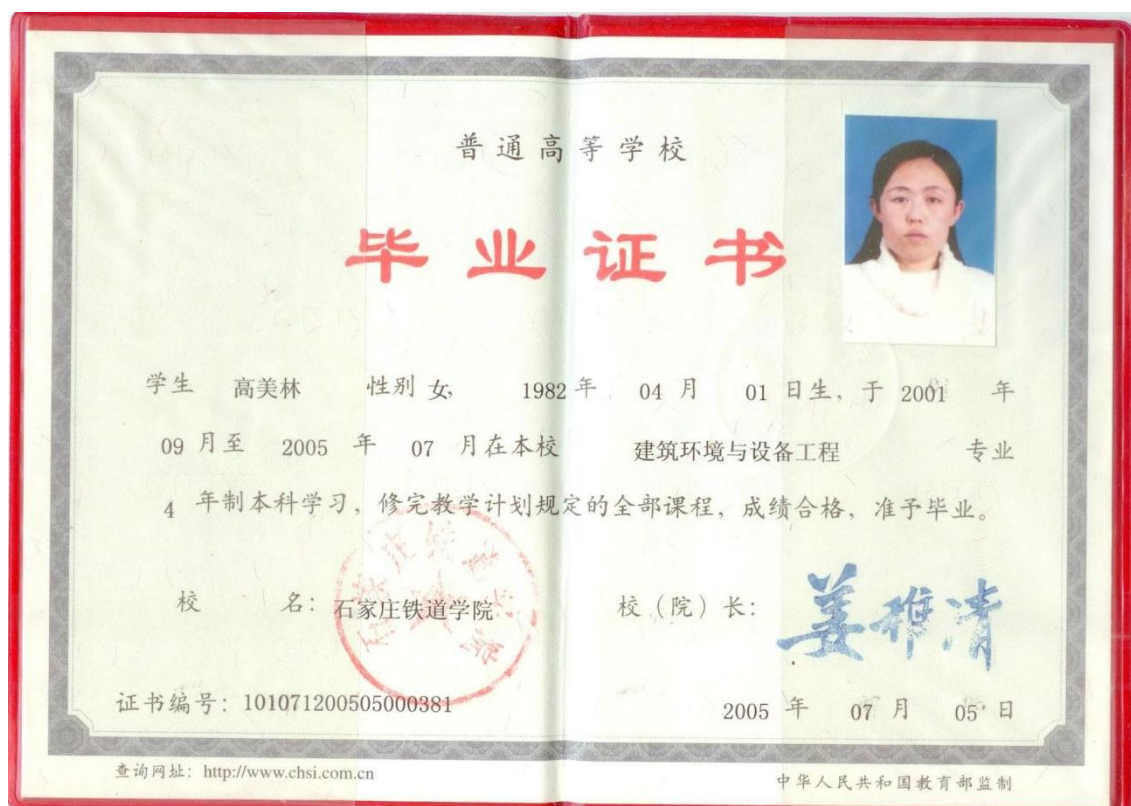 普通高等学校
毕业证书
学生 高美林 性别 女, 1982 年 04 月 01 日生, 于 2001 年
09 月至 2005 年 07 月在本校 建筑环境与设备工程 专业
4 年制本科学习, 修完教学计划规定的全部课程, 成绩合格, 准予毕业。
校 名: 石家庄铁道学院 校(院)长: 姜雅清
证书编号: 101071200505000381 2005 年 07 月 05 日
查询网址: http://www.chsi.com.cn 中华人民共和国教育部监制